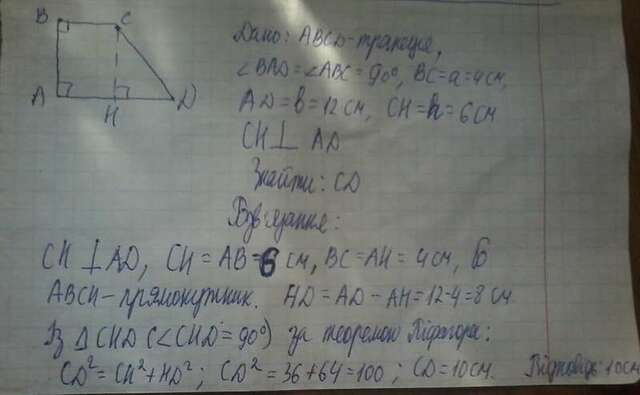 B C
A H D
Дано: ABCD-трапеція,
∠BAD=∠ABC=90°, BC=a=4см,
AD=b=12см, CH=h=6см
CH⊥AD
Знайти: CD
Розв'язання:
CH⊥AD, CH=AB=6см, BC=AH=4см, Б
ABCH-прямокутник. HD=AD-AH=12-4=8см
Із ΔCHD (∠CHD=90°) за теоремою Піфагора:
CD²=CH²+HD²; CD²=36+64=100; CD=10см. Відповідь: 10см